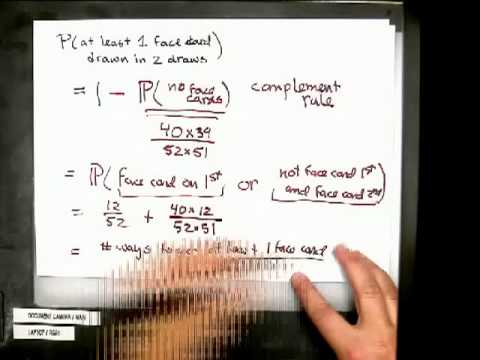 P(at least 1 face card
drawn in 2 draws)
= 1 - P(no face cards) complement rule
40×39
52×51
= P(face card on 1st or not face card 1st
and face card 2nd)
= 12/52 + 40×12/52·51
= # ways to at least 1 face card
DOCUMENT CAMERA / MAIN
LAPTOP / RGB1